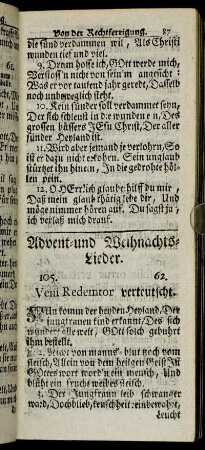 Von der Rechtfertigung. 87
die sünd verdammen wil, Als Christi
wunden tief und viel.
9. Drum hoffe ich, GOtt werde mich,
Verstoss'n nicht von sein'm angesicht:
Was er vor tausend jahr geredt, Dasselb
noch unbeweglich steht.
10. Kein sünder soll verdammet seyn,
Der sich schleust in die wunden ein, Des
grossen büssers JEsu Christ, Der aller
sünder Heyland ist.
11. Wird aber jemand je verlohrn, So
ist er dazu nicht erkohrn. Sein unglaub
stürtzet ihn hinein, In die gedrohte höl-
len pein.
12. O HErr, ich glaub: hilf du mir,
Daß mein glaub thätig lebe dir, Und
möge nimmer hören auf. Du sagst ja,
ich verlaß mich drauf.
Advent- und Weihnachts-
Lieder.
105. 62.
Veni Redemtor verteutscht.
NUn komm der heyden Heyland, Der
jungfrauen kind erkannt, Des sich
wundert alle welt, GOtt solch geburt
ihm bestellt.
2. Nicht von manns-blut noch vom
fleisch, Allein von dem heilgen Geist Ist
GOttes wort word'n ein mensch, Und
blüht ein frucht weibes fleisch.
3. Der Jungfrauen leib schwanger
ward, Doch blieb keuschheit rein bewahrt,
Leucht